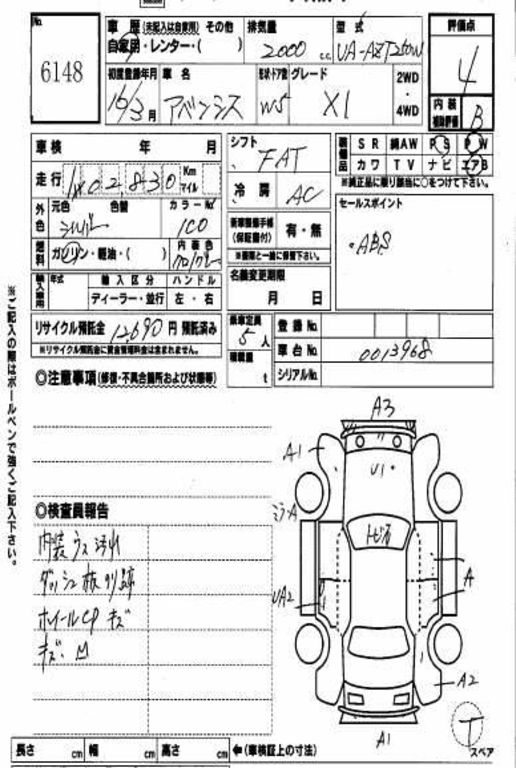 No.
6148
車歴 (未記入は自家用) その他
自家用・レンター・( )
排気量
2000 c.c.
型式
UA-AZT250W
評価点
4
初度登録年月
16/3月
車名
アベンシス
形状・ドア数
W5
グレード
XI
2WD
・
4WD
内装
補助評価
B
車検 年 月
走行 102,830 Km
マイル
外色
元色
シルバー
色替
カラーNo.
1C0
燃料
ガソリン・軽油・( )
内装色
輸入車用
年式
輸入区分
ディーラー・並行
ハンドル
左・右
リサイクル預託金 12,690 円 預託済み
※リサイクル預託金に資金管理料金は含まれません。
シフト
FAT
冷房
AC
新車整備手帳
(保証書付)
有・無
※書類と一緒に保管下さい。
名義変更期限
月 日
乗車定員
5人
積載量
t
装備品
SR 純AW PS PW
カワ TV ナビ エアB
※純正品に限り該当に○をつけて下さい。
セールスポイント
・ABS
登録No.
車台No. 0013968
シリアルNo.
◎注意事項 (修復・不具合箇所および状態等)
◎検査員報告
内装ウス汚れ
ダッシュ板ノリ跡
ホイールCPキズ
キズ・凹
A3
A1
U1
ミラーA
トビ石
A
UA2
A2
A1
T
スペア
長さ cm 幅 cm 高さ cm ←(車検証上の寸法)
※ご記入の際はボールペンで強くご記入下さい。